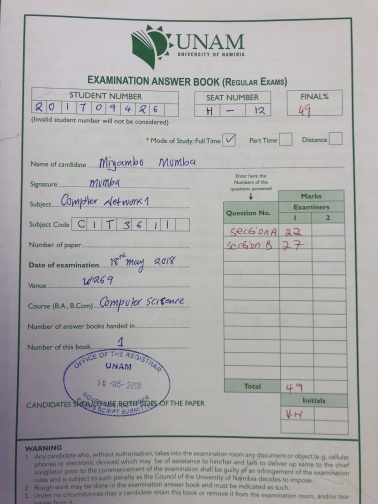 UNAM
UNIVERSITY OF NAMIBIA
EXAMINATION ANSWER BOOK (REGULAR EXAMS)
STUDENT NUMBER SEAT NUMBER FINAL%
201709426 H - 12 49
(Invalid student number will not be considered)
* Mode of Study: Full Time ✓ Part Time Distance
Name of candidate Miyambo Mumba
Signature Mumba
Subject Computer Networks
Subject Code CIT3611
Number of paper
Date of examination 18th may 2018
Venue W269
Course (B.A., B.Com) Computer Science
Number of answer books handed in
Number of this book 1
Enter here the Numbers of the questions answered
Marks
Question No. Examiners
1 2
Section A 22
Section B 27
Total 49
Initials
OFFICE OF THE REGISTRAR
UNAM
18-05-2018
CANDIDATES SHOULD USE BOTH SIDES OF THE PAPER
WARNING
1. Any candidate who, without authorisation, takes into the examination room any document or object (e.g. cellular
phones or electronic devices) which may be of assistance to him/her and fails to deliver up same to the chief
invigilator prior to the commencement of the examination shall be guilty of an infringement of the examination
rules and is subject to such penalty as the Council of the University of Namibia decides to impose.
2. Rough work may be done in the examination answer book and must be indicated as such.
3. Under no circumstances may a candidate retain this book or remove it from the examination room, and/or tear